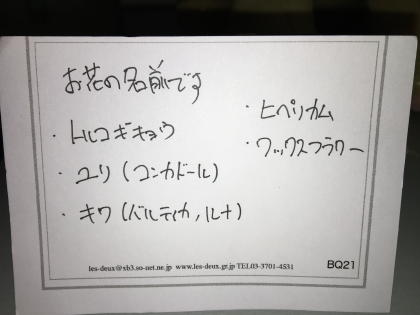 お花の名前です
・トルコギキョウ
・ユリ(コンカドール)
・キク(バルティカ,ルナ)
・ヒペリカム
・ワックスフラワー
les-deux@xb3.so-net.ne.jp www.les-deux.gr.jp TEL03-3701-4531
BQ21